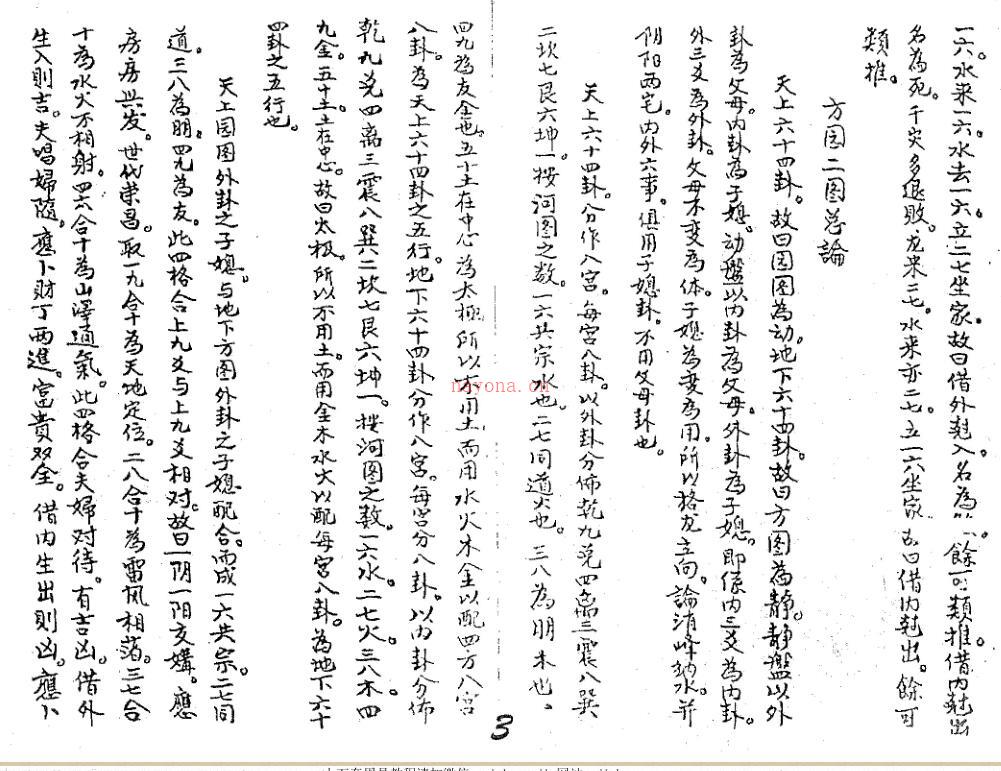 一六。水來一六。水去一六。立二七坐家。故曰借外尅入。名為
餘可類推。借內尅出
名為死。千灾多退敗。龙來二七。水來亦二七。立一六坐家
曰借內尅出。餘可
類推。
方囩二图总論
天上六十四卦。故曰囩图為动。地下六十四卦故曰方图為静。静盤以外
卦為父母。内卦為子媳。动盤以内卦為父母。外卦為子媳。即係内三爻為内卦。
外三爻為外卦。父母不变為体。子媳為变為用。所以格龙立向。論消峰納水。并
阴阳两宅。内外六事。俱用子媳卦。不用父母卦也。
天上六十四卦。分作八宫。每宫八卦。以外卦分佈乾九兑四离三震八巽
二坎七艮六坤一。按河图之数。一六共宗水也。二七同道火也。三八為朋木也。
四九為友金也。五十土在中心為太極。所以不用土。而用水火木金以配四方八宫
八卦。為天上六十四卦之五行。地下六十四卦分作八宫。每宫分八卦。以内卦分佈
乾九兑四离三震八巽二坎七艮六坤一。按河图之数。一六水。二七火。三八木。四
九金。五十土。土在中心。故曰太极。所以不用土。而用金木水火以配每宫八卦。為地下六十
四卦之五行也。
天上囩图外卦之子媳。与地下方图外卦之子媳配合。而成一六共宗。二七同
道。三八為朋。四九為友。此四格合上九爻与上九爻相对。故曰一阴一阳交媾。應
房房兴发。世代荣昌。取一九合十為天地定位。二八合十為雷风相薄。三七合
十為水火不相射。四六合十為山澤通氣。此四格合夫婦对待。有吉凶。借外
生入則吉。夫唱婦隨。應卜财丁两進。富貴双全。借内生出則凶。應卜
3
nayona.cn